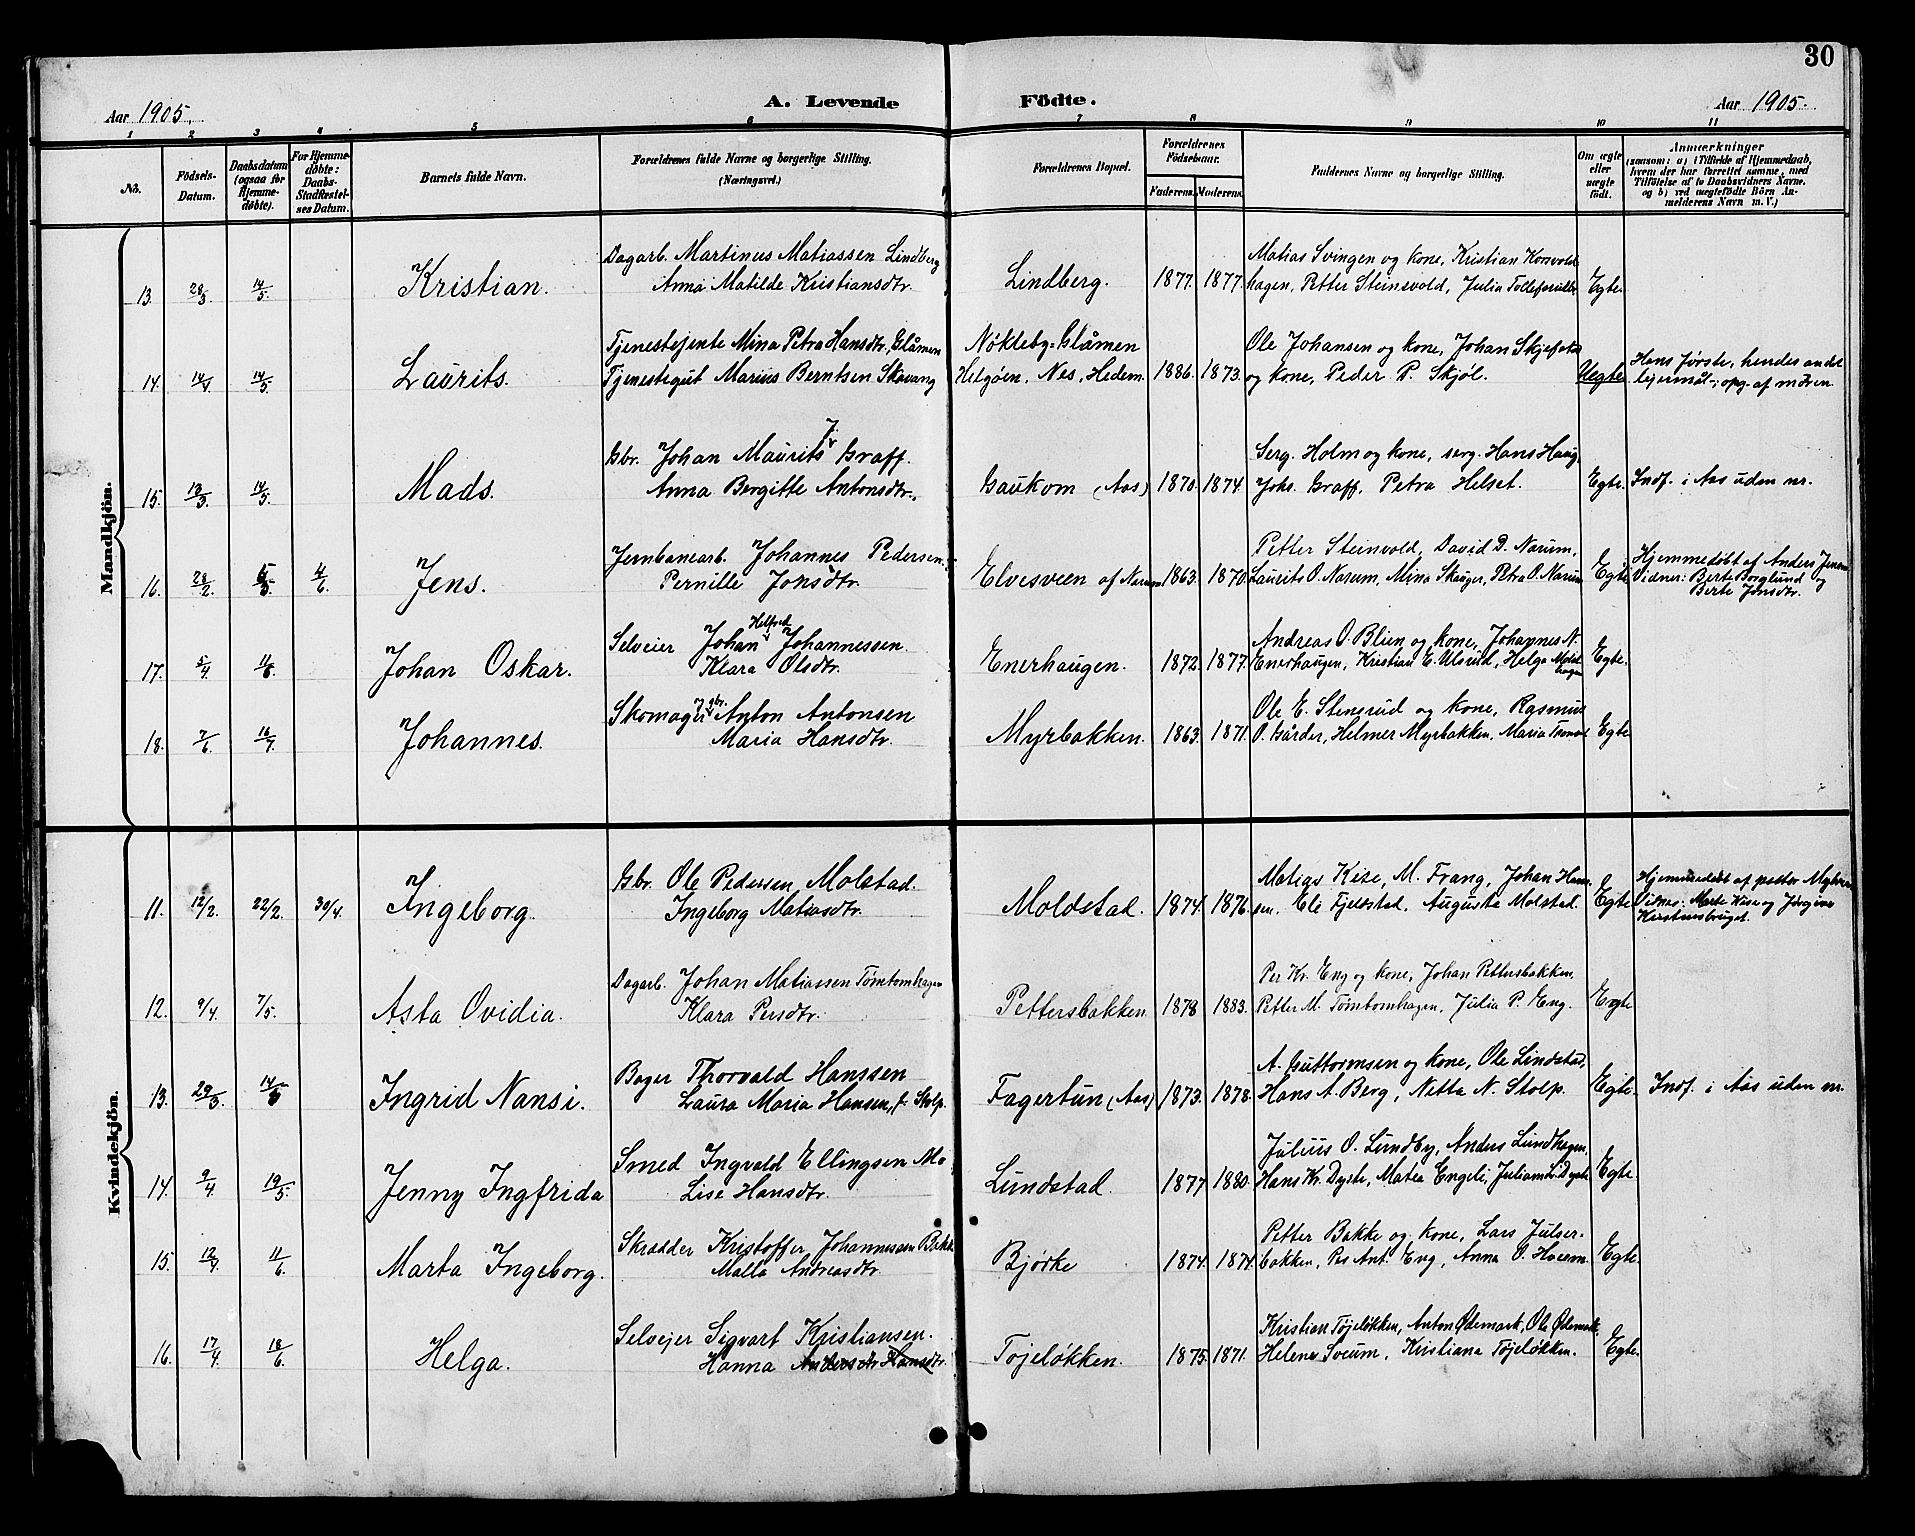 30
Aar 1905.
A. Levende Födte.
Aar 1905.
1 2 3 4 5 6 7 8 9 10 11
No.
Födsels-Datum.
Daabsdatum (ogsaa for Hjemme-døbte).
For Hjemme-døbte: Daabs-Stadfæstel-ses Datum.
Barnets fulde Navn.
Forældrenes fulde Navne og borgerlige Stilling. (Næringsvei.)
Forældrenes Bopæl.
Forældrenes Födselsaar.
Faderens. Moderens.
Faddernes Navne og borgerlige Stilling.
Om ægte eller uægte født.
Anmærkninger
(saasom: a) i Tilfælde af Hjemmedaab,
hvem der har forrettet samme, med
Tilföielse af to Daabsvidners Navne.
og b) ved uægtefödte Börn An-
melderens Navn m. V.)
Mandkjön.
Dagarb. Martinus Matiassen Lindberg
Matias Svingen og kone, Kristian Korsvold-
13. 28/3. 14/5. Kristian. Anna Matilde Kristiansdtr. Lindberg. 1877. 1877. hagen, Petter Steinsvold, Julia Egte.
Tjenestejente Mina Petra Hansdtr. Glåmen Nøkleby-Glåmen Ole Johansen og kone, Johan
Hans første, hendes andet
14. 14/1 14/5. Laurits. Tjenestegut Marius Berntsen Skavang Helgøen, Nes, Hedem. 1886. 1873. og kone, Peder P. Skjøl. Uegte
lejermål-; opg. af moren
J.
Gbr. Johan Maurits Graff.
Serg. Holm og kone, serg. Hans Haug,
15. 13/3. 14/5. Mads. Anna Bergitte Antonsdtr. Gaukom (Aas) 1870. 1874. Johs. Graff, Petra Helset. Egte. Indf. i Aas uden nr.
Jernbanearb. Johannes Pedersen.
Petter Steinvold, David D. Narum,
Hjemmedøbt af Anders Jensen
16. 28/2. 5/3. 4/6. Jens. Pernille Jonsdtr. Elvesveen af Narum 1863. 1870. Laurits O. Narum, Mina Skauger, Petra O. Narum Egte
Vidner: Berte Borglund og
Berte Jonsdtr.
Helfred
Selveier Johan Johannessen.
Andreas O. Blien og kone, Johannes N.
17. 5/4. 11/6. Johan Oskar. Klara Olsdtr. Enerhaugen. 1872. 1877. Enerhaugen, Kristian E. Ulsrud, Helga Egte.
gbr.
Skomager Anton Antonsen
Ole E. Stenerud og kone, Rasmus
18. 7/6. 16/7. Johannes. Maria Hansdtr. Myrbakken. 1863. 1871. O. Gårder, Helmer Myrbakken, Maria Egte
Kvindekjön.
Gbr. Ole Pedersen Molstad.
Matias Kise, M. Frang, Johan Han-
Hjemmedøbt af petter
11. 12/2. 22/2. 30/4. Ingeborg. Ingeborg Matiasdtr. Moldstad. 1874. 1876. sen, Ole Fjeldstad, Augusta Molstad. Egte
Vidner: Marte Kise og Jørgine
Kirstinsbruget.
Dagarb. Johan Matiassen Tømtomhagen
Per Kr. Eng og kone, Johan Pettersbakken,
12. 9/4. 7/5. Asta Ovidia. Klara Persdtr. Pettersbakken. 1878 1883. Petter M. Tømtomhagen, Julia P. Eng. Egte
Bager Thorvald Hanssen
A. Guttormsen og kone, Ole Lindstad,
13. 29/3. 14/5 Ingrid Nansi. Laura Maria Hansen, f. Stolp. Fagertun (Aas) 1873. 1878. Hans A. Berg, Netta N. Stolp. Egte. Indf. i Aas uden nr.
Smed Ingvald Ellingsen Mo,
Julius O. Lundby, Anders Lundhagen,
14. 9/4. 19/5. Jenny Ingfrida Lise Hansdtr. Lundstad. 1877 1880. Hans Kr. Dyste, Matea Engeli, Juliane L. Dyste Egte.
Skrædder Kristoffer Johannessen Bakke
Petter Bakke og kone, Lars Julser-
15. 12/4. 11/6. Marta Ingeborg. Malla Andreasdtr. Bjørke 1874. 1874. bakken, Per Ant. Eng, Anna O. Egte.
Selvejer Sigvart Kristiansen.
Kristian Tøjeløkken, Anton Ødemark, Ole Ødemark,
16. 17/4. 18/6. Helga. Hanna Andersdtr Hansdtr. Tøjeløkken. 1875. 1871. Helene Sveum, Kristiana Tøjeløkken. Egte.